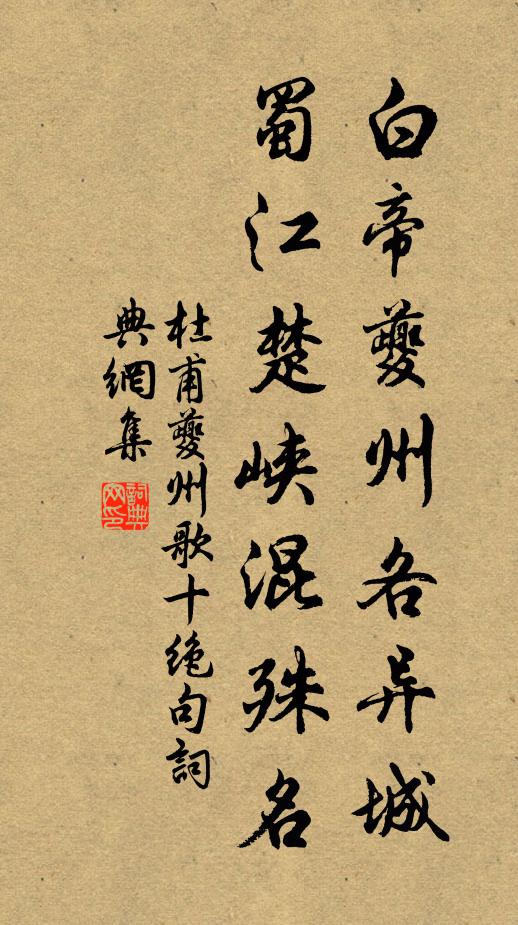 白帝夔州各异城
蜀江楚峡混殊名
杜甫夔州歌十绝句詞
典網集
詞典
网印